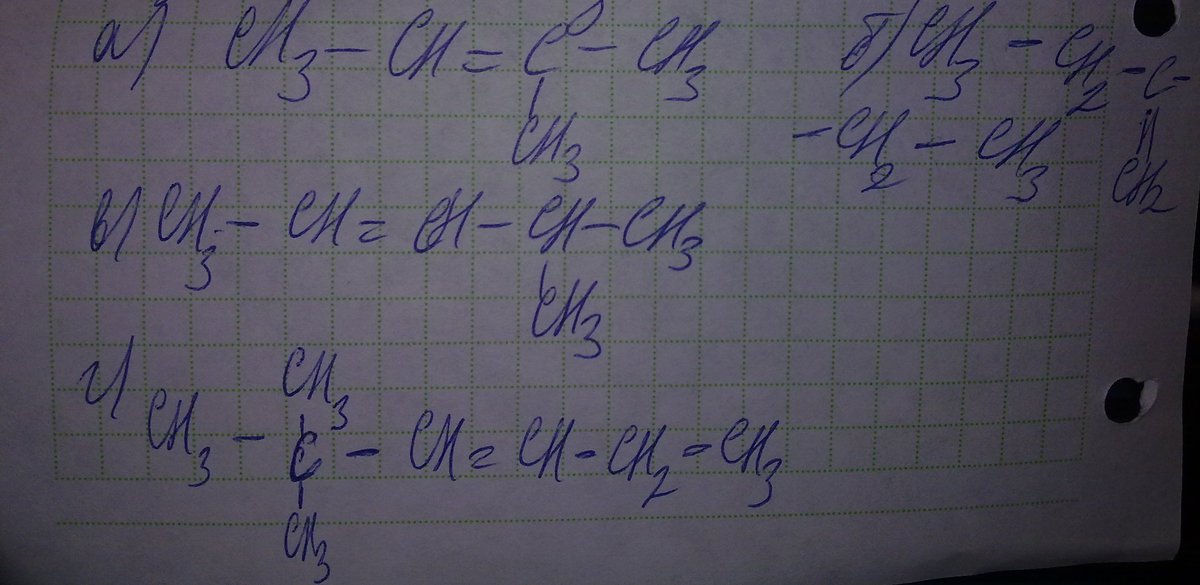 а) CH3 – CH = C – CH3
CH3
б) CH3 – CH2 – C –
– CH2 – CH3
||
CH2
в) CH3 – CH = CH – CH – CH3
CH3
г)
CH3
CH3 – C – CH = CH – CH2 – CH3
CH3